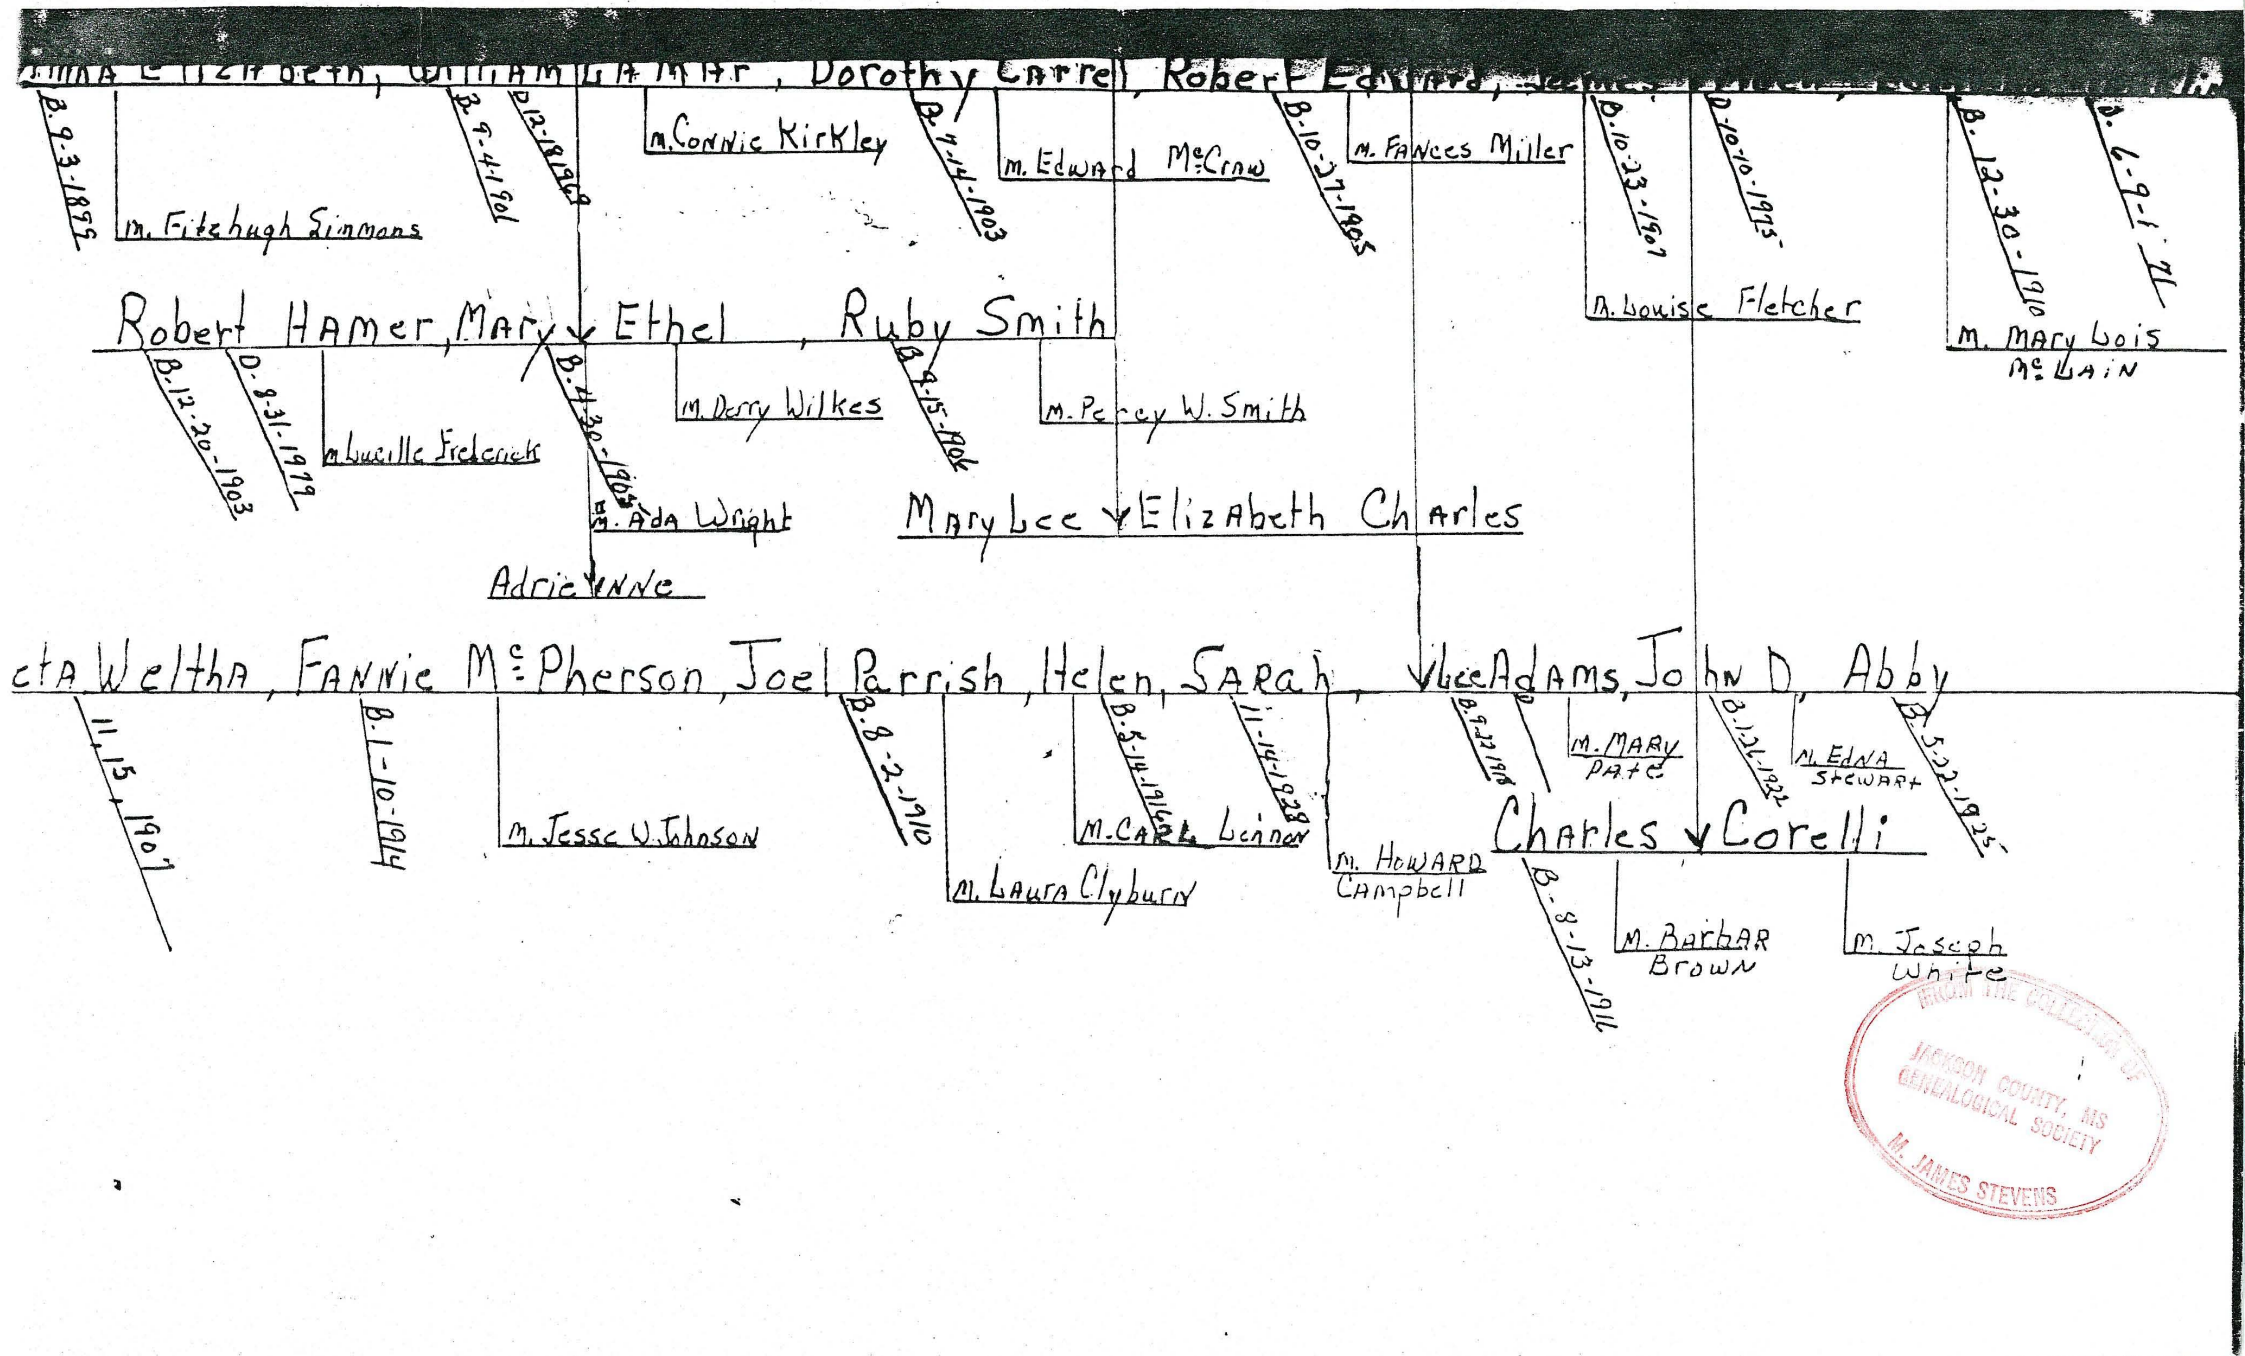 Elizabeth, William Lamar, Dorothy Carrel, Robert Edward,
B. 9-3-1899
m. Fitzhugh Simmons
B. 9-4-1901
D 12-18 1969
m. Connie Kirkley
B. 7-14-1903
m. Edward McCraw
B. 10-27-1905
m. Fances Miller
B. 10-23-1907
D-10-10-1975
m. Louise Fletcher
B. 12-30-1910
M. Mary Lois
McLain
B. 6-9-1
Robert Hamer, Mary Ethel, Ruby Smith
B. 12-20-1903
D. 8-31-1979
m. Lucille Frederick
B. 4-30-1905
m. Derry Wilkes
B 9-15-1906
m. Percy W. Smith
m. Ada Wright
Mary Lee Elizabeth Charles
Adrie nne
cta Weltha, Fannie McPherson, Joel Parrish, Helen, Sarah, Lee Adams, John D, Abby
11, 15, 1907
B. 1-10-1914
m. Jesse W. Johnson
B. 8-2-1910
m. Laura Clyburn
B. 5-14-1916
m. Carl Lennon
11-14-1928
m. Howard
Campbell
B. 9-22-1918
D
m. Mary
Pate
B. 1-26-1922
m. Edna
Stewart
B. 5-22-1925
Charles Corelli
B.-8-13-1916
m. Barbar
Brown
m. Joseph
White
FROM THE COLLECTION OF
JACKSON COUNTY, MS
GENEALOGICAL SOCIETY
M. JAMES STEVENS